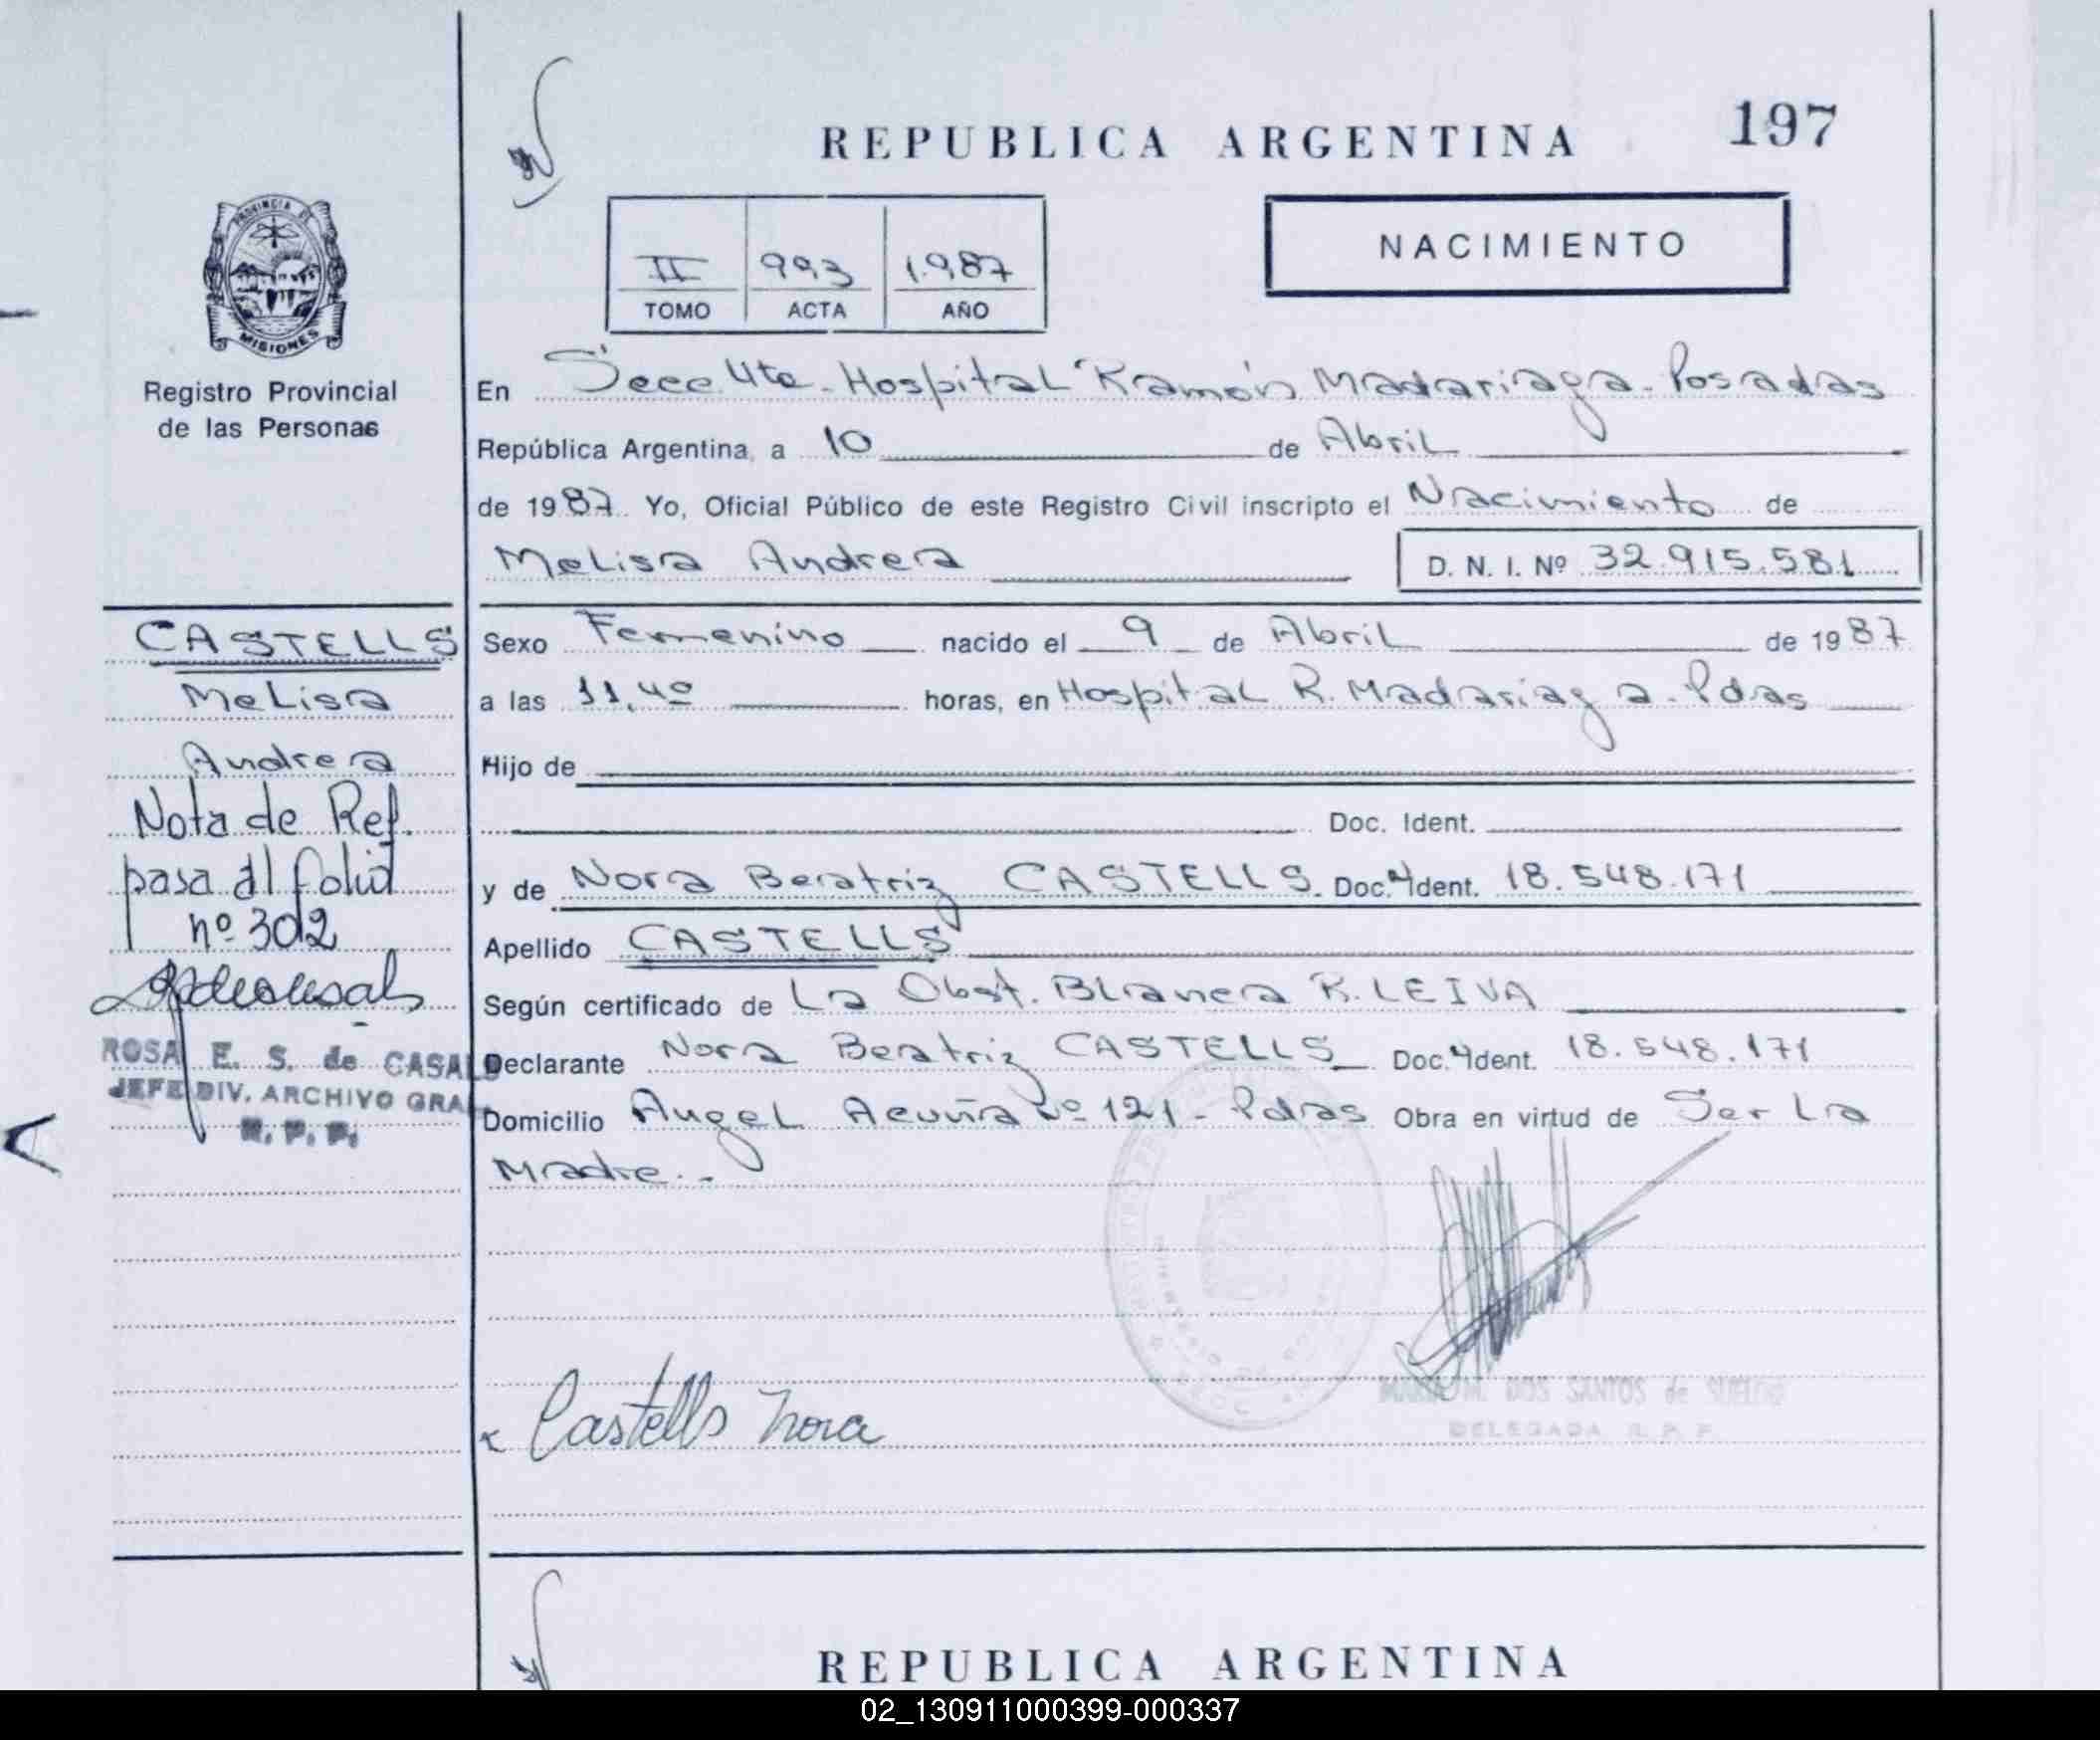 REPUBLICA ARGENTINA
197
PROVINCIA DE
MISIONES
Registro Provincial
de las Personas
II 993 1.987
TOMO ACTA AÑO
NACIMIENTO
En Secc 4ta. Hospital Ramón Madariaga. Posadas
República Argentina, a 10 de Abril
de 1987. Yo, Oficial Público de este Registro Civil inscripto el Nacimiento de
Melisa Andrea D. N. I. Nº 32.915.581
CASTELLS
Melisa
Andrea
Nota de Ref.
pasa al folio
nº 302
ROSA E. S. de CASAL
JEFE DIV. ARCHIVO GRAL
R. P. P.
Sexo Femenino nacido el 9 de Abril de 1987
a las 11,40 horas, en Hospital R. Madariaga. Pdas
Hijo de
Doc. Ident.
y de Nora Beatriz CASTELLS. Doc. Ident. 18.548.171
Apellido CASTELLS
Según certificado de La Obst. Blanca R. LEIVA
Declarante Nora Beatriz CASTELLS Doc. Ident. 18.548.171
Domicilio Angel Acuña Nº 121 - Pdas Obra en virtud de Ser La
Madre.-
MARIA M. DOS SANTOS de
DELEGADA R. P. P.
x Castells Nora
REPUBLICA ARGENTINA
02_130911000399-000337